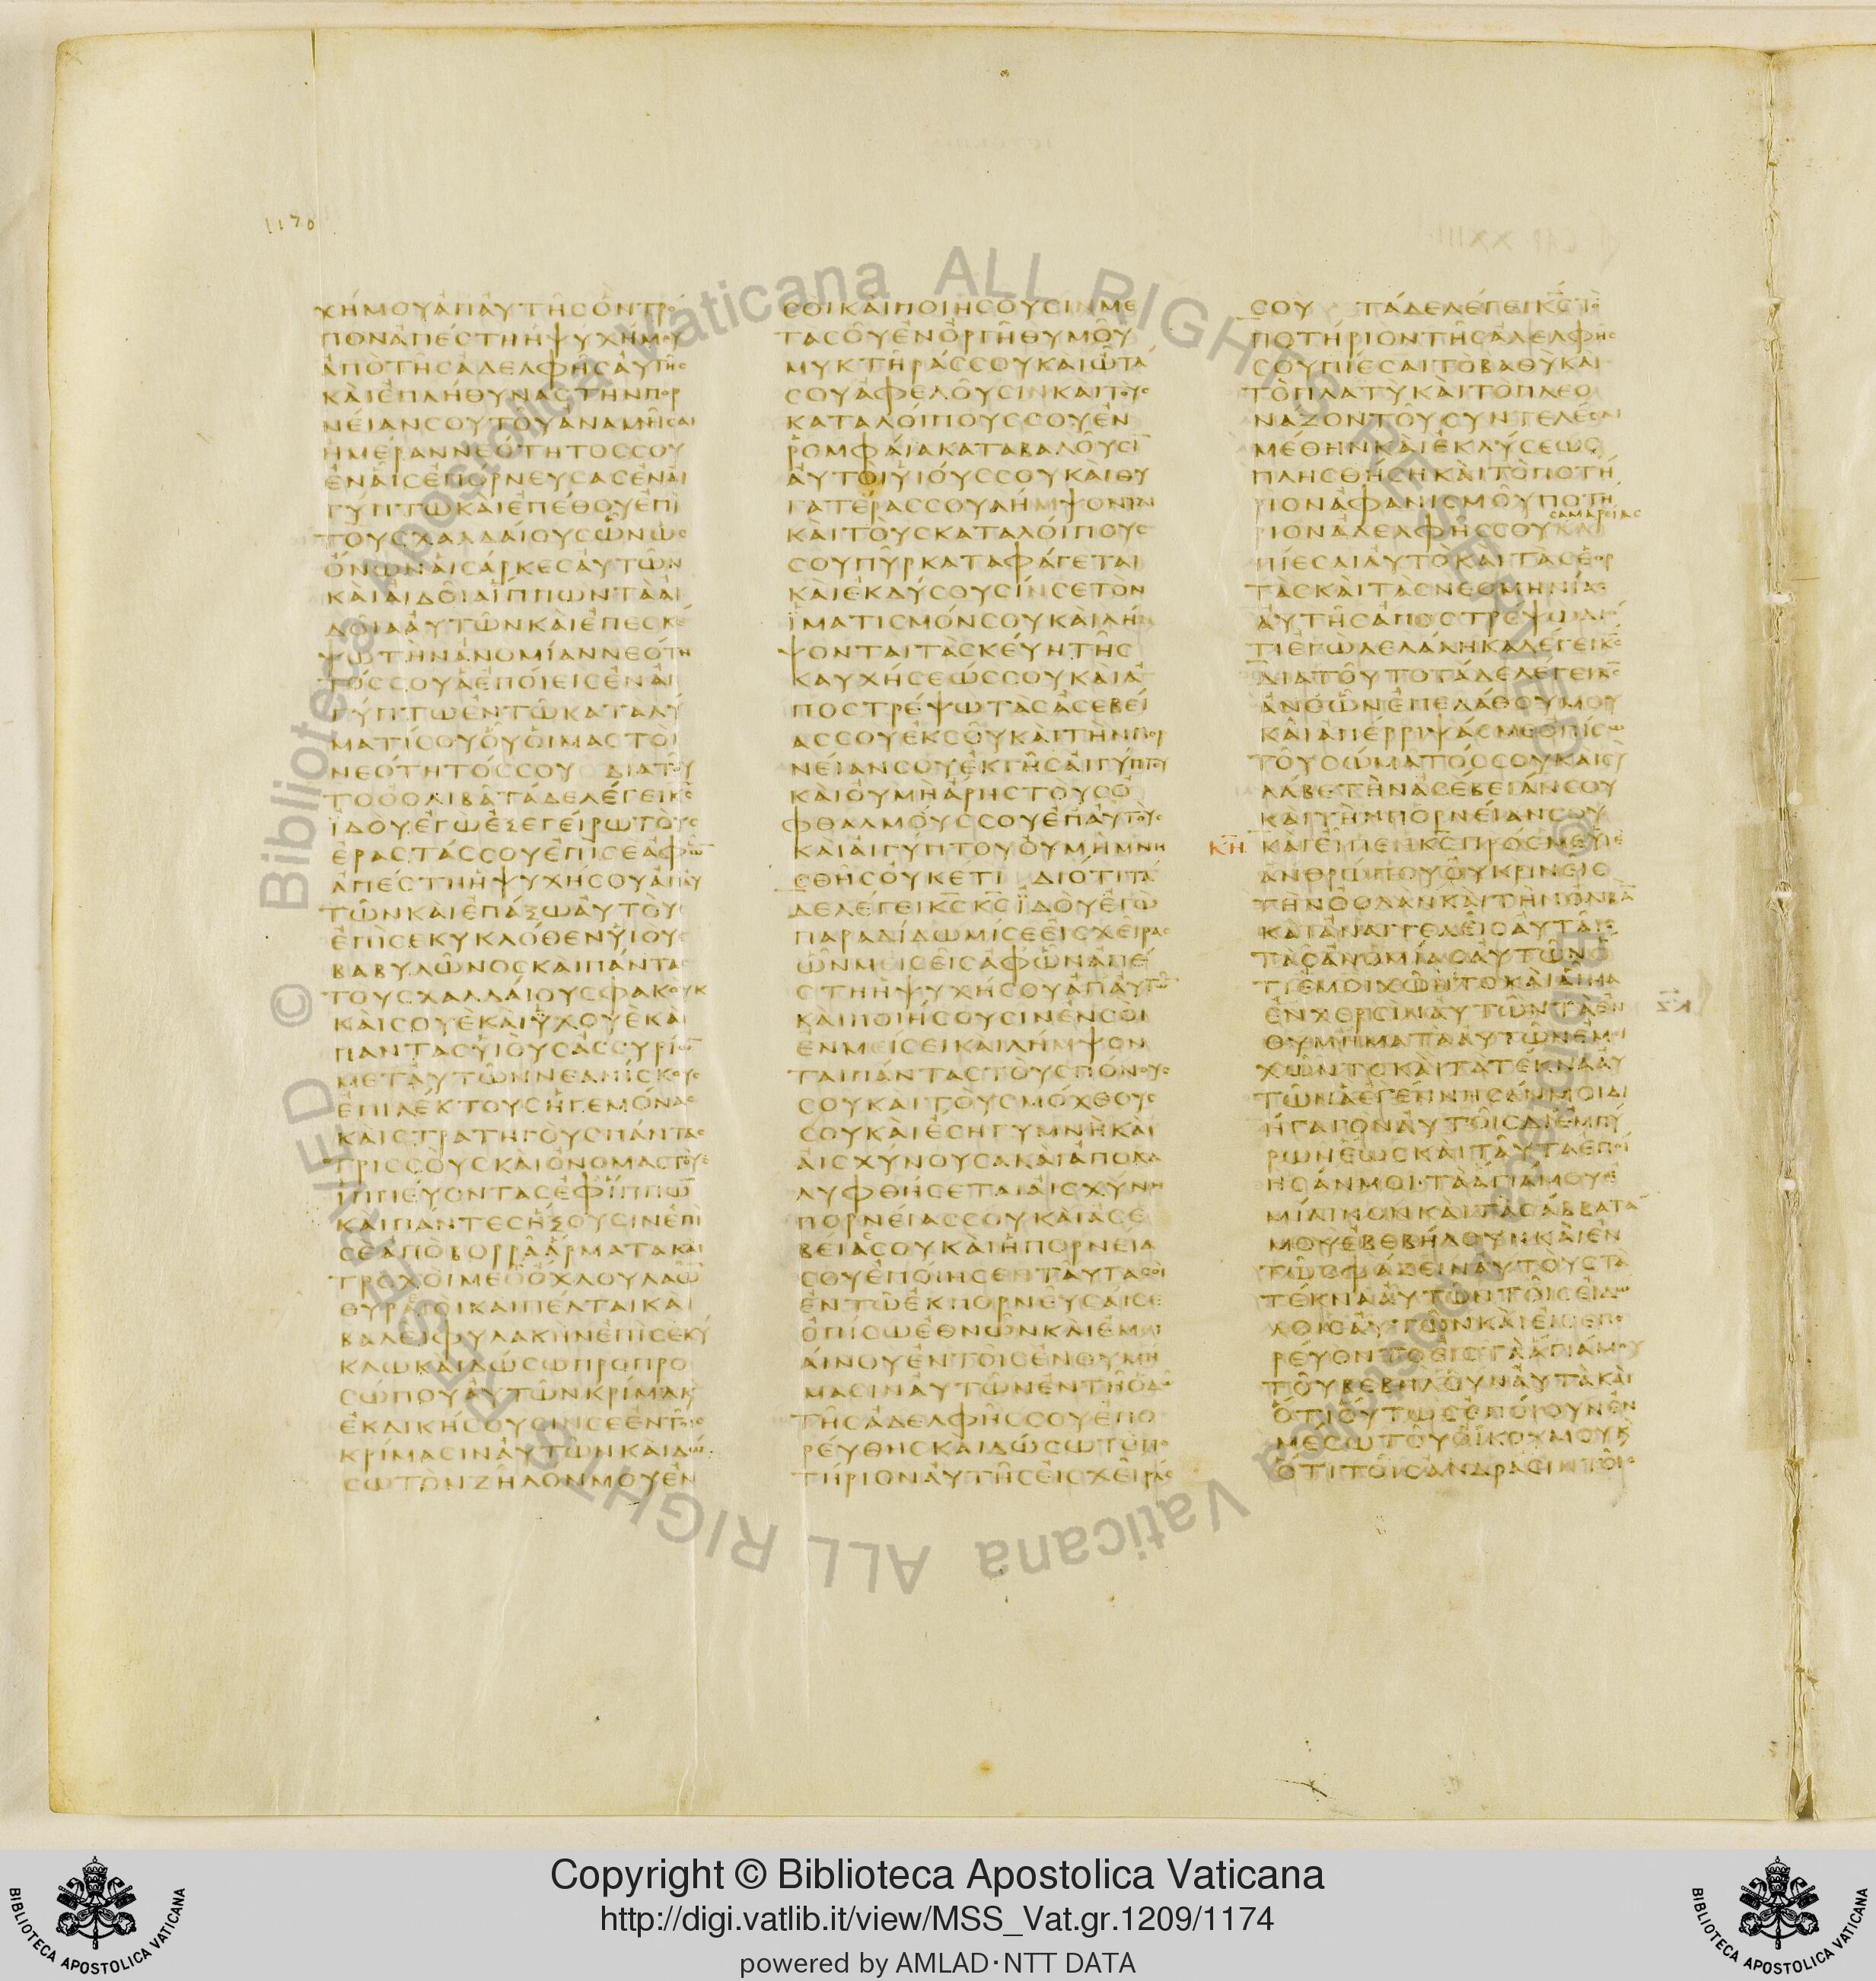 1170
ΧΗΜΟΥΑΠΑΥΤΗϹΟΝΤΡΟ
ΠΟΝΑΠΕϹΤΗΗΨΥΧΗΜΟΥ
ΑΠΟΤΗϹΑΔΕΛΦΗϹΑΥΤΗϹ
ΚΑΙΕΠΛΗΘΥΝΑϹΤΗΝΠΟΡ
ΝΕΙΑΝϹΟΥΤΟΥΑΝΑΜΝΗϹΑΙ
ΗΜΕΡΑΝΝΕΟΤΗΤΟϹϹΟΥ
ΕΝΑΙϹΕΠΟΡΝΕΥϹΑϹΕΝΑΙ
ΓΥΠΤΩΚΑΙΕΠΕΘΟΥΕΠΙ
ΤΟΥϹΧΑΛΔΑΙΟΥϹΩΝΩϹ
ΟΝΩΝΑΙϹΑΡΚΕϹΑΥΤΩΝ
ΚΑΙΑΙΔΟΙΑΙΠΠΩΝΤΑΑΙ
ΔΟΙΑΑΥΤΩΝΚΑΙΕΠΕϹΚΕ
ΨΩΤΗΝΑΝΟΜΙΑΝΝΕΟΤΗ
ΤΟϹϹΟΥΑΕΠΟΙΕΙϹΕΝΑΙ
ΓΥΠΤΩΕΝΤΩΚΑΤΑΛΥ
ΜΑΤΙϹΟΥΟΥΟΙΜΑϹΤΟΙ
ΝΕΟΤΗΤΟϹϹΟΥ ΔΙΑΤΟΥ
ΤΟΟΟΛΙΒΑΤΑΔΕΛΕΓΕΙΚ̅Ϲ̅
ΪΔΟΥΕΓΩΕΞΕΓΕΙΡΩΤΟΥϹ
ΕΡΑϹΤΑϹϹΟΥΕΠΙϹΕΑΦΩ̅
ΑΠΕϹΤΗΗΨΥΧΗϹΟΥΑΠΑΥ
ΤΩΝΚΑΙΕΠΑΞΩΑΥΤΟΥϹ
ΕΠΙϹΕΚΥΚΛΟΘΕΝΥΙΟΥϹ
ΒΑΒΥΛΩΝΟϹΚΑΙΠΑΝΤΑϹ
ΤΟΥϹΧΑΛΔΑΙΟΥϹΦΑΚΟΥΚ
ΚΑΙϹΟΥΕΚΑΙΥΧΟΥΕΚΑΙ
ΠΑΝΤΑϹΥΙΟΥϹΑϹϹΥΡΙΩ̅
ΜΕΤΑΥΤΩΝΝΕΑΝΙϹΚΟΥϹ
ΕΠΙΛΕΚΤΟΥϹΗΓΕΜΟΝΑϹ
ΚΑΙϹΤΡΑΤΗΓΟΥϹΠΑΝΤΑϹ
ΤΡΙϹϹΟΥϹΚΑΙΟΝΟΜΑϹΤΟΥϹ
ΙΠΠΕΥΟΝΤΑϹΕΦΙΠΠΩ̅
ΚΑΙΠΑΝΤΕϹΗΞΟΥϹΙΝΕΠΙ
ϹΕΑΠΟΒΟΡΡΑΑΡΜΑΤΑΚΑΙ
ΤΡΟΧΟΙΜΕΤΟΧΛΟΥΛΑΩ̅
ΘΥΡΕΟΙΚΑΙΠΕΛΤΑΙΚΑΙ
ΒΑΛΕΙΦΥΛΑΚΗΝΕΠΙϹΕΚΥ
ΚΛΩΚΑΙΔΩϹΩΠΡΟΠΡΟ
ϹΩΠΟΥΑΥΤΩΝΚΡΙΜΑΚ
ΕΚΔΙΚΗϹΟΥϹΙΝϹΕΕΝΤΟΙϹ
ΚΡΙΜΑϹΙΝΑΥΤΩΝΚΑΙΔΩ
ϹΩΤΟΝΖΗΛΟΝΜΟΥΕΝ
ϹΟΙΚΑΙΠΟΙΗϹΟΥϹΙΝΜΕ
ΤΑϹΟΥΕΝΟΡΓΗΘΥΜΟΥ
ΜΥΚΤΗΡΑϹϹΟΥΚΑΙΩΤΑ
ϹΟΥΑΦΕΛΟΥϹΙΝΚΑΙΤΟΥϹ
ΚΑΤΑΛΟΙΠΟΥϹϹΟΥΕΝ
ΡΟΜΦΑΙΑΚΑΤΑΒΑΛΟΥϹΙ̅
ΑΥΤΟΙΥΙΟΥϹϹΟΥΚΑΙΘΥ
ΓΑΤΕΡΑϹϹΟΥΛΗΜΨΟΝΤΑΙ
ΚΑΙΤΟΥϹΚΑΤΑΛΟΙΠΟΥϹ
ϹΟΥΠΥΡΚΑΤΑΦΑΓΕΤΑΙ
ΚΑΙΕΚΔΥϹΟΥϹΙΝϹΕΤΟΝ
ΪΜΑΤΙϹΜΟΝϹΟΥΚΑΙΛΗΜ
ΨΟΝΤΑΙΤΑϹΚΕΥΗΤΗϹ
ΚΑΥΧΗϹΕΩϹϹΟΥΚΑΙΑ
ΠΟϹΤΡΕΨΩΤΑϹΑϹΕΒΕΙ
ΑϹϹΟΥΕΚϹΟΥΚΑΙΤΗΝΠΟΡ
ΝΕΙΑΝϹΟΥΕΚΓΗϹΑΙΓΥΠΤΟΥ
ΚΑΙΟΥΜΗΑΡΗϹΤΟΥϹΟ
ΦΘΑΛΜΟΥϹϹΟΥΕΠΑΥΤΟΥϹ
ΚΑΙΑΙΓΥΠΤΟΥΟΥΜΗΜΝΗ
ϹΘΗϹΟΥΚΕΤΙ ΔΙΟΤΙΤΑ
ΔΕΛΕΓΕΙΚ̅Ϲ̅Κ̅Ϲ̅ΪΔΟΥΕΓΩ
ΠΑΡΑΔΙΔΩΜΙϹΕΕΙϹΧΕΙΡΑϹ
ΩΝΜΙϹΕΙϹΑΦΩΝΑΠΕ
ϹΤΗΗΨΥΧΗϹΟΥΑΠΑΥΤΩ̅
ΚΑΙΠΟΙΗϹΟΥϹΙΝΕΝϹΟΙ
ΕΝΜΕΙϹΕΙΚΑΙΛΗΜΨΟΝ
ΤΑΙΠΑΝΤΑϹΤΟΥϹΠΟΝΟΥϹ
ϹΟΥΚΑΙΤΟΥϹΜΟΧΘΟΥϹ
ϹΟΥΚΑΙΕϹΗΓΥΜΝΗΚΑΙ
ΑΙϹΧΥΝΟΥϹΑΚΑΙΑΠΟΚΑ
ΛΥΦΘΗϹΕΤΑΙΑΙϹΧΥΝΗ
ΠΟΡΝΕΙΑϹϹΟΥΚΑΙΑϹΕ
ΒΕΙΑϹΟΥΚΑΙΗΠΟΡΝΕΙΑ
ϹΟΥΕΠΟΙΗϹΕΝΤΑΥΤΑϹΟΙ
ΕΝΤΩΕΚΠΟΡΝΕΥϹΑΙϹΕ
ΟΠΙϹΩΕΘΝΩΝΚΑΙΕΜΙ
ΑΙΝΟΥΕΝΤΟΙϹΕΝΘΥΜΗ
ΜΑϹΙΝΑΥΤΩΝΕΝΤΗΟΔΩ
ΤΗϹΑΔΕΛΦΗϹϹΟΥΕΠΟ
ΡΕΥΘΗϹΚΑΙΔΩϹΩΤΟΠΟ
ΤΗΡΙΟΝΑΥΤΗϹΕΙϹΧΕΙΡΑϹ
ϹΟΥ ΤΑΔΕΛΕΓΕΙΚ̅Ϲ̅ΤΟ
ΠΟΤΗΡΙΟΝΤΗϹΑΔΕΛΦΗϹ
ϹΟΥΠΙΕϹΑΙΤΟΒΑΘΥΚΑΙ
ΤΟΠΛΑΤΥΚΑΙΤΟΠΛΕΟ
ΝΑΖΟΝΤΟΥϹΥΝΤΕΛΕϹΑΙ
ΜΕΘΗΝΚΑΙΕΚΛΥϹΕΩϹ
ΠΛΗϹΘΗϹΗΚΑΙΤΟΠΟΤΗ
ΡΙΟΝΑΦΑΝΙϹΜΟΥΠΟΤΗ
ϹΑΜΑΡΕΙΑϹ
ΡΙΟΝΑΔΕΛΦΗϹϹΟΥΚΑΙ
ΠΙΕϹΑΙΑΥΤΟΚΑΙΤΑϹΕΟΡ
ΤΑϹΚΑΙΤΑϹΝΕΟΜΗΝΙΑϹ
ΑΥΤΗϹΑΠΟϹΤΡΕΨΩΔΙΟ
ΤΙΕΓΩΛΕΛΑΛΗΚΑΛΕΓΕΙΚ̅Ϲ̅
ΔΙΑΤΟΥΤΟΤΑΔΕΛΕΓΕΙΚ̅Ϲ̅
ΑΝΘΩΝΕΠΕΛΑΘΟΥΜΟΥ
ΚΑΙΑΠΕΡΡΙΨΑϹΜΕΟΠΙϹΩ
ΤΟΥϹΩΜΑΤΟϹϹΟΥΚΑΙϹΥ
ΛΑΒΕΤΗΝΑϹΕΒΕΙΑΝϹΟΥ
ΚΑΙΤΗΝΠΟΡΝΕΙΑΝϹΟΥ
Κ̅Η̅ ΚΑΙΕΙΠΕΝΚ̅Ϲ̅ΠΡΟϹΜΕΥΙΕ
ΑΝΘΡΩΠΟΥΟΥΚΡΙΝΕΙϹ
ΤΗΝΟΟΛΑΝΚΑΙΤΗΝΟΛΙΒΑ̅
ΚΑΙΑΠΑΓΓΕΛΕΙϹΑΥΤΑΙϹ
ΤΑϹΑΝΟΜΙΑϹΑΥΤΩΝΟ
ΤΙΕΜΟΙΧΩΝΤΟΚΑΙΑΙΜΑ
ΕΝΧΕΡϹΙΝΑΥΤΩΝΤΑΕΝ
ΘΥΜΗΜΑΤΑΑΥΤΩΝΕΜΟΙ
ΧΩΝΤΟΚΑΙΤΑΤΕΚΝΑΑΥ
ΤΩΝΑΕΓΕΝΝΗϹΑΝΜΟΙΔΙ
ΗΓΑΓΟΝΑΥΤΟΙϹΔΙΕΜΠΥ
ΡΩΝΕΩϹΚΑΙΤΑΥΤΑΕΠΟΙ
ΗϹΑΝΜΟΙ·ΤΑΑΓΙΑΜΟΥΕ
ΜΙΑΙΝΟΝΚΑΙΤΑϹΑΒΒΑΤΑ
ΜΟΥΕΒΕΒΗΛΟΥΝΚΑΙΕΝ
ΤΩϹΦΑΖΕΙΝΑΥΤΟΥϹΤΑ
ΤΕΚΝΑΑΥΤΩΝΤΟΙϹΕΙΔΩ
ΛΟΙϹΑΥΤΩΝΚΑΙΕΙϹΕΠΟ
ΡΕΥΟΝΤΟΕΙϹΤΑΑΓΙΑΜΟΥ
ΤΟΥΒΕΒΗΛΟΥΝΑΥΤΑΚΑΙ
ΟΤΙΟΥΤΩϹΕΠΟΙΟΥΝΕΝ
ΜΕϹΩΤΟΥΟΙΚΟΥΜΟΥΚ
ΟΤΙΤΟΙϹΑΝΔΡΑϹΙΝΤΟΙϹ
Copyright © Biblioteca Apostolica Vaticana
http://digi.vatlib.it/view/MSS_Vat.gr.1209/1174
powered by AMLAD·NTT DATA
BIBLIOTECA APOSTOLICA VATICANA
BIBLIOTECA APOSTOLICA VATICANA
© Biblioteca Apostolica Vaticana ALL RIGHTS RESERVED
© Biblioteca Apostolica Vaticana ALL RIGHTS RESERVED